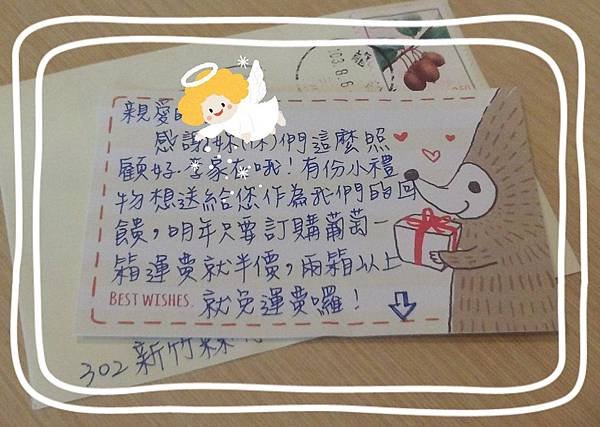 103.8.6
親愛的
感謝妳(你)們這麼照
顧好 家 哦！有份小禮
物想送給您作為我們的回
饋，明年只要訂購葡萄一
箱運費就半價，兩箱以上
BEST WISHES. 就免運費囉！
302 新竹縣